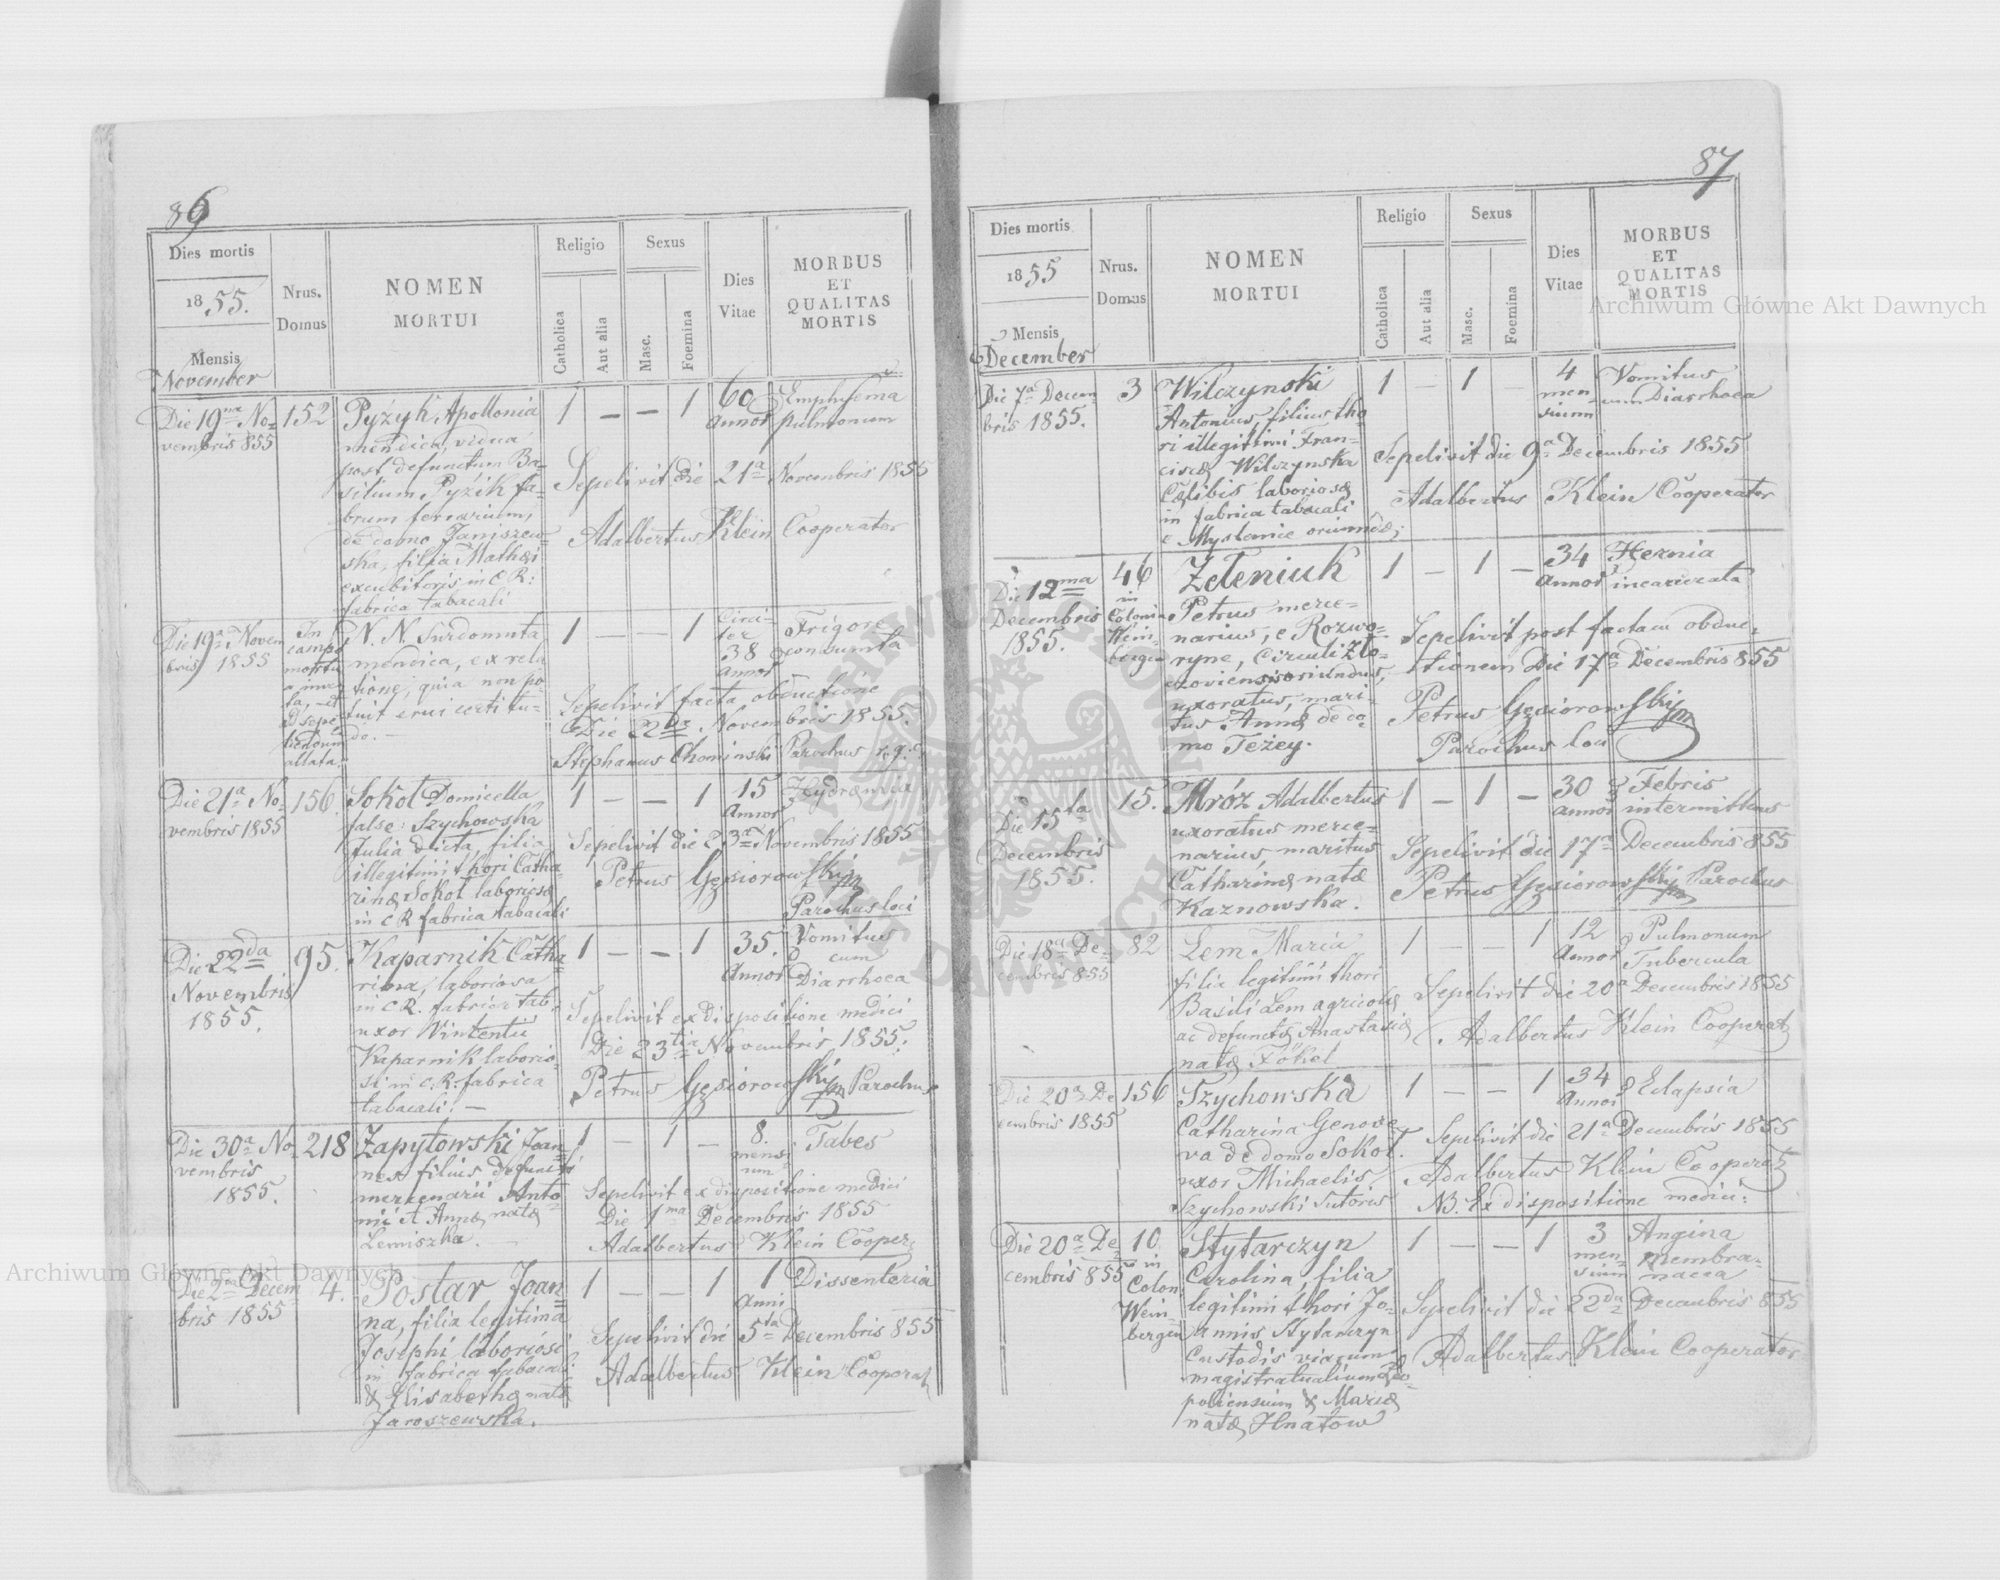 86
Dies mortis
1855.
Mensis
November
Nrus.
Domus
NOMEN
MORTUI
Religio
Catholica
Aut alia
Sexus
Masc.
Foemina
Dies
Vitae
MORBUS
ET
QUALITAS
MORTIS
Die 19na No-
vembris 855
152
Pyżyk, Apollonia
mendica, vidua
post defunctum Ba-
silium Pyżik fa-
brum ferrarium,
de domo Janiszew
ska, filia Mathæi
excubitoris in C R:
fabrica tabacali
1 — — 1
60
annor
Emphisema
pulmonum
Sepelivit die 21a Novembris 1855
Adalbertus Klein Cooperator
Die 19a Novem
bris 1855
In
campo
mortu
a inven
ta, et
ad sepe
liendum
allata.
N. N. Surdomuta
mendica, ex rela
tione, quia non po-
tuit erui certitu-
do. —
1 — — 1
Circi-
ter
38
annor
Frigore
consumta
Sepelivit facta obductione
Die 22da Novembris 1855.
Stephanus Chominski Parochus r. g. c.
Die 21a No-
vembris 1855
156
Sokoł Domicella
false: Szychowska
Julia dicta, filia
illegitimi thori Catha-
rinæ Sokoł laboriosæ
in C R fabrica tabacali
1 — — 1
15
Annor
Hydræmia
Sepelivit die 23a Novembris 1855
Petrus Gęsiorowski
Parochus loci
Die 22da
Novembris
1855.
95.
Kaparnik Catha-
rina, laboriosa
in C R. fabrica tab.
uxor Vintentii
Kaparnik laborio-
si in C: R: fabrica
tabacali. —
1 — — 1
35.
Annor
Vomitus
cum
Diarrhoea
Sepelivit ex dispositione medici
Die 23tia Novembris 1855.
Petrus Gęsiorowski Parochus
Die 30a No-
vembris
1855.
218
Zapytowski Joan-
nes filius defuncti
mercenarii Anto
nii et Annæ natæ
Lemiszka.
1 — 1 —
8.
mensi-
um
Tabes
Sepelivit ex dispositione medici
Die 1ma Decembris 1855
Adalbertus Klein Cooper
Die 2da Decem
bris 1855
4.
Postar Joan-
na, filia legitima
Josephi laboriosi
in fabrica tabacali
& Elisabethæ natæ
Jaroszewska.
1 — — 1
1
Anni
Dissenteria
Sepelivit die 5ta Decembris 855
Adalbertus Klein Cooperat
87
Dies mortis
1855
Mensis
December
Nrus.
Domus
NOMEN
MORTUI
Religio
Catholica
Aut alia
Sexus
Masc.
Foemina
Dies
Vitae
MORBUS
ET
QUALITAS
MORTIS
Die 7a Decem-
bris 1855.
3
Wilczynski
Antonius, filius tho
ri illegitimi Fran-
ciscæ Wilczynska
Cælibis laboriosæ
in fabrica tabacali
e Myslenice oriundæ;
1 — 1 —
4
men-
sium
Vomitus
cum Diarrhoea
Sepelivit die 9a Decembris 1855
Adalbertus Klein Cooperator
Die 12ma
Decembris
1855.
46
in
Coloni
Wein-
bergen
Zeleniuk
Petrus merce-
narius, e Rozwo-
ryne, Circuli Zło-
czoviensis oriundus,
uxoratus, mari-
tus Annæ de do-
mo Teżey.
1 — 1 —
34
Annor
Hernia
incarcerata
Sepelivit post factam obduc-
tionem Die 17a Decembris 855
Petrus Gęsiorowski
Parochus loci
Die 15ta
Decembris
1855.
15.
Mróz Adalbertus
uxoratus merce-
narius, maritus
Catharinæ natæ
Kaznowska.
1 — 1 —
30
annor
Febris
intermittens
Sepelivit die 17a Decembris 855
Petrus Gęsiorowski Parochus
Die 18a De-
cembris 855
82
Lem Maria
filia legitimi thori
Basili Lem agricolæ
ac defunctæ Anastasiæ
natæ
1 — — 1
12
Annor
Pulmonum
Tubercula
Sepelivit die 20a Decembris 1855
Adalbertus Klein Cooperat
Die 20a De
cembris 1855
156
Szychowska
Catharina Genove-
va de domo Sokoł.
uxor Michaelis
Szychowski Sutoris
1 — — 1
34
Annor
Eclapsia
Sepelivit die 21a Decembris 1855
Adalbertus Klein Cooperat
NB. Ex dispositione medici:
Die 20a De
cembris 855
10
in
Colon
Wein-
bergen
Stytarczyn
Carolina, filia
legitimi thori Jo-
annis Stytarczyn
Custodis viarum
magistratualium Leo-
poliensium & Mariæ
natæ Hnatow
1 — — 1
3
men-
sium
Angina
membra-
nacea
Sepelivit die 22da Decembris 855
Adalbertus Klein Cooperator
Archiwum Główne Akt Dawnych
Archiwum Główne Akt Dawnych
ARCHIWUM GŁÓWNE AKT DAWNYCH